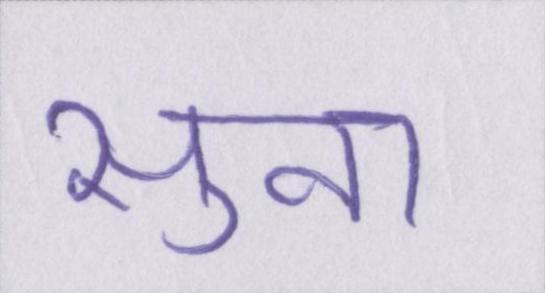 सुना